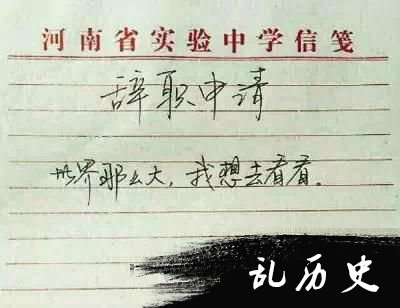 河南省实验中学信笺
辞职申请
世界那么大，我想去看看。
乱历史